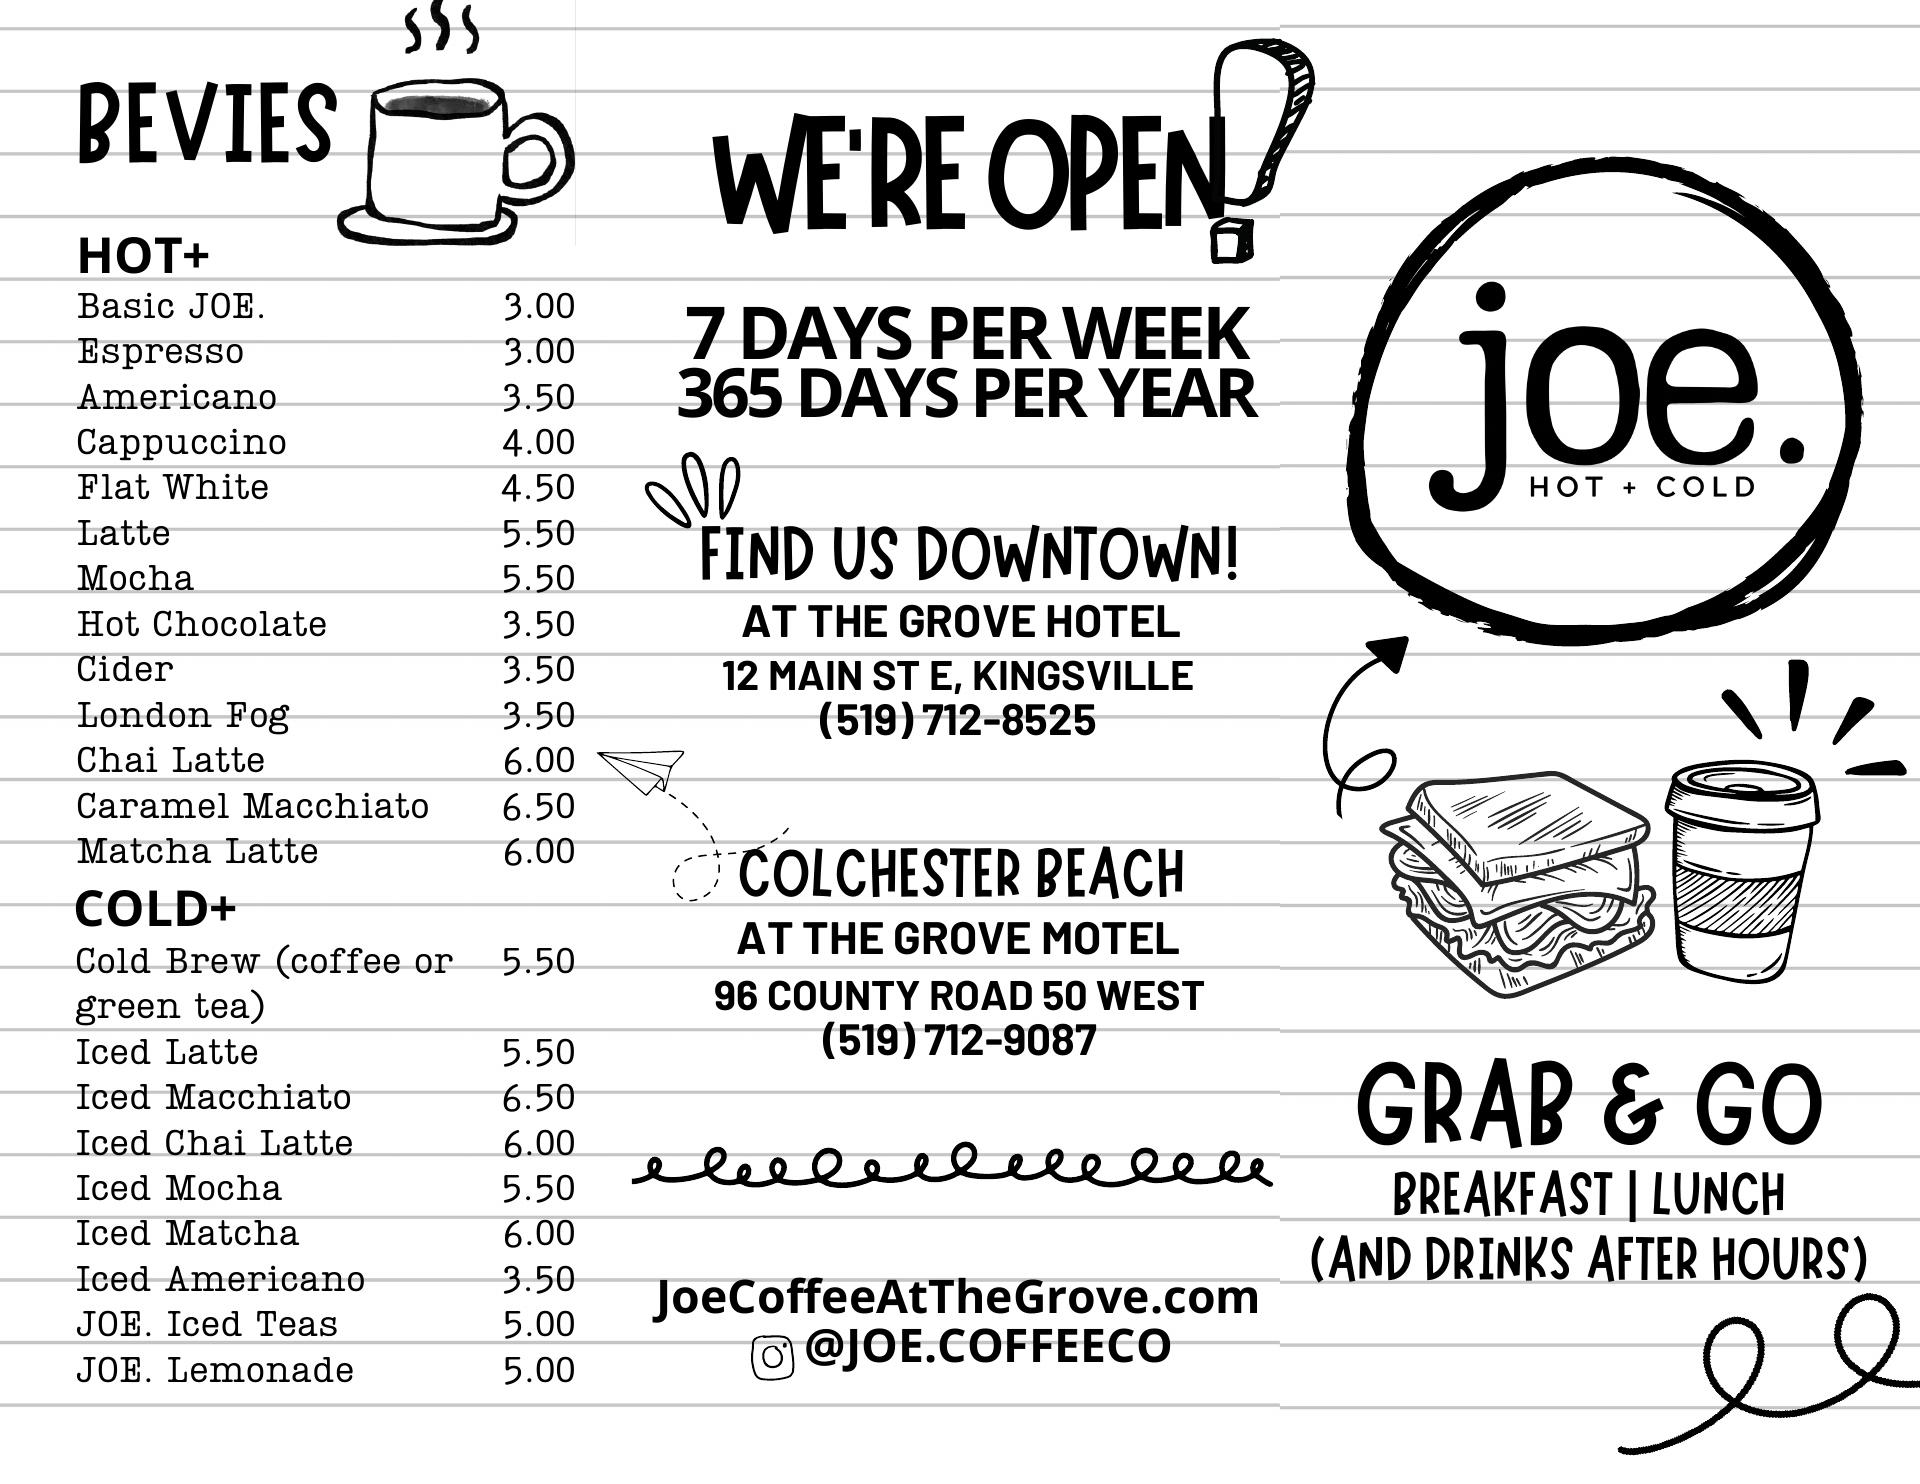 BEVIES
HOT+
Basic JOE. 3.00
Espresso 3.00
Americano 3.50
Cappuccino 4.00
Flat White 4.50
Latte 5.50
Mocha 5.50
Hot Chocolate 3.50
Cider 3.50
London Fog 3.50
Chai Latte 6.00
Caramel Macchiato 6.50
Matcha Latte 6.00
COLD+
Cold Brew (coffee or 5.50
green tea)
Iced Latte 5.50
Iced Macchiato 6.50
Iced Chai Latte 6.00
Iced Mocha 5.50
Iced Matcha 6.00
Iced Americano 3.50
JOE. Iced Teas 5.00
JOE. Lemonade 5.00
WE'RE OPEN!
7 DAYS PER WEEK
365 DAYS PER YEAR
FIND US DOWNTOWN!
AT THE GROVE HOTEL
12 MAIN ST E, KINGSVILLE
(519) 712-8525
COLCHESTER BEACH
AT THE GROVE MOTEL
96 COUNTY ROAD 50 WEST
(519) 712-9087
JoeCoffeeAtTheGrove.com
@JOE.COFFEECO
joe.
HOT + COLD
GRAB & GO
BREAKFAST | LUNCH
(AND DRINKS AFTER HOURS)